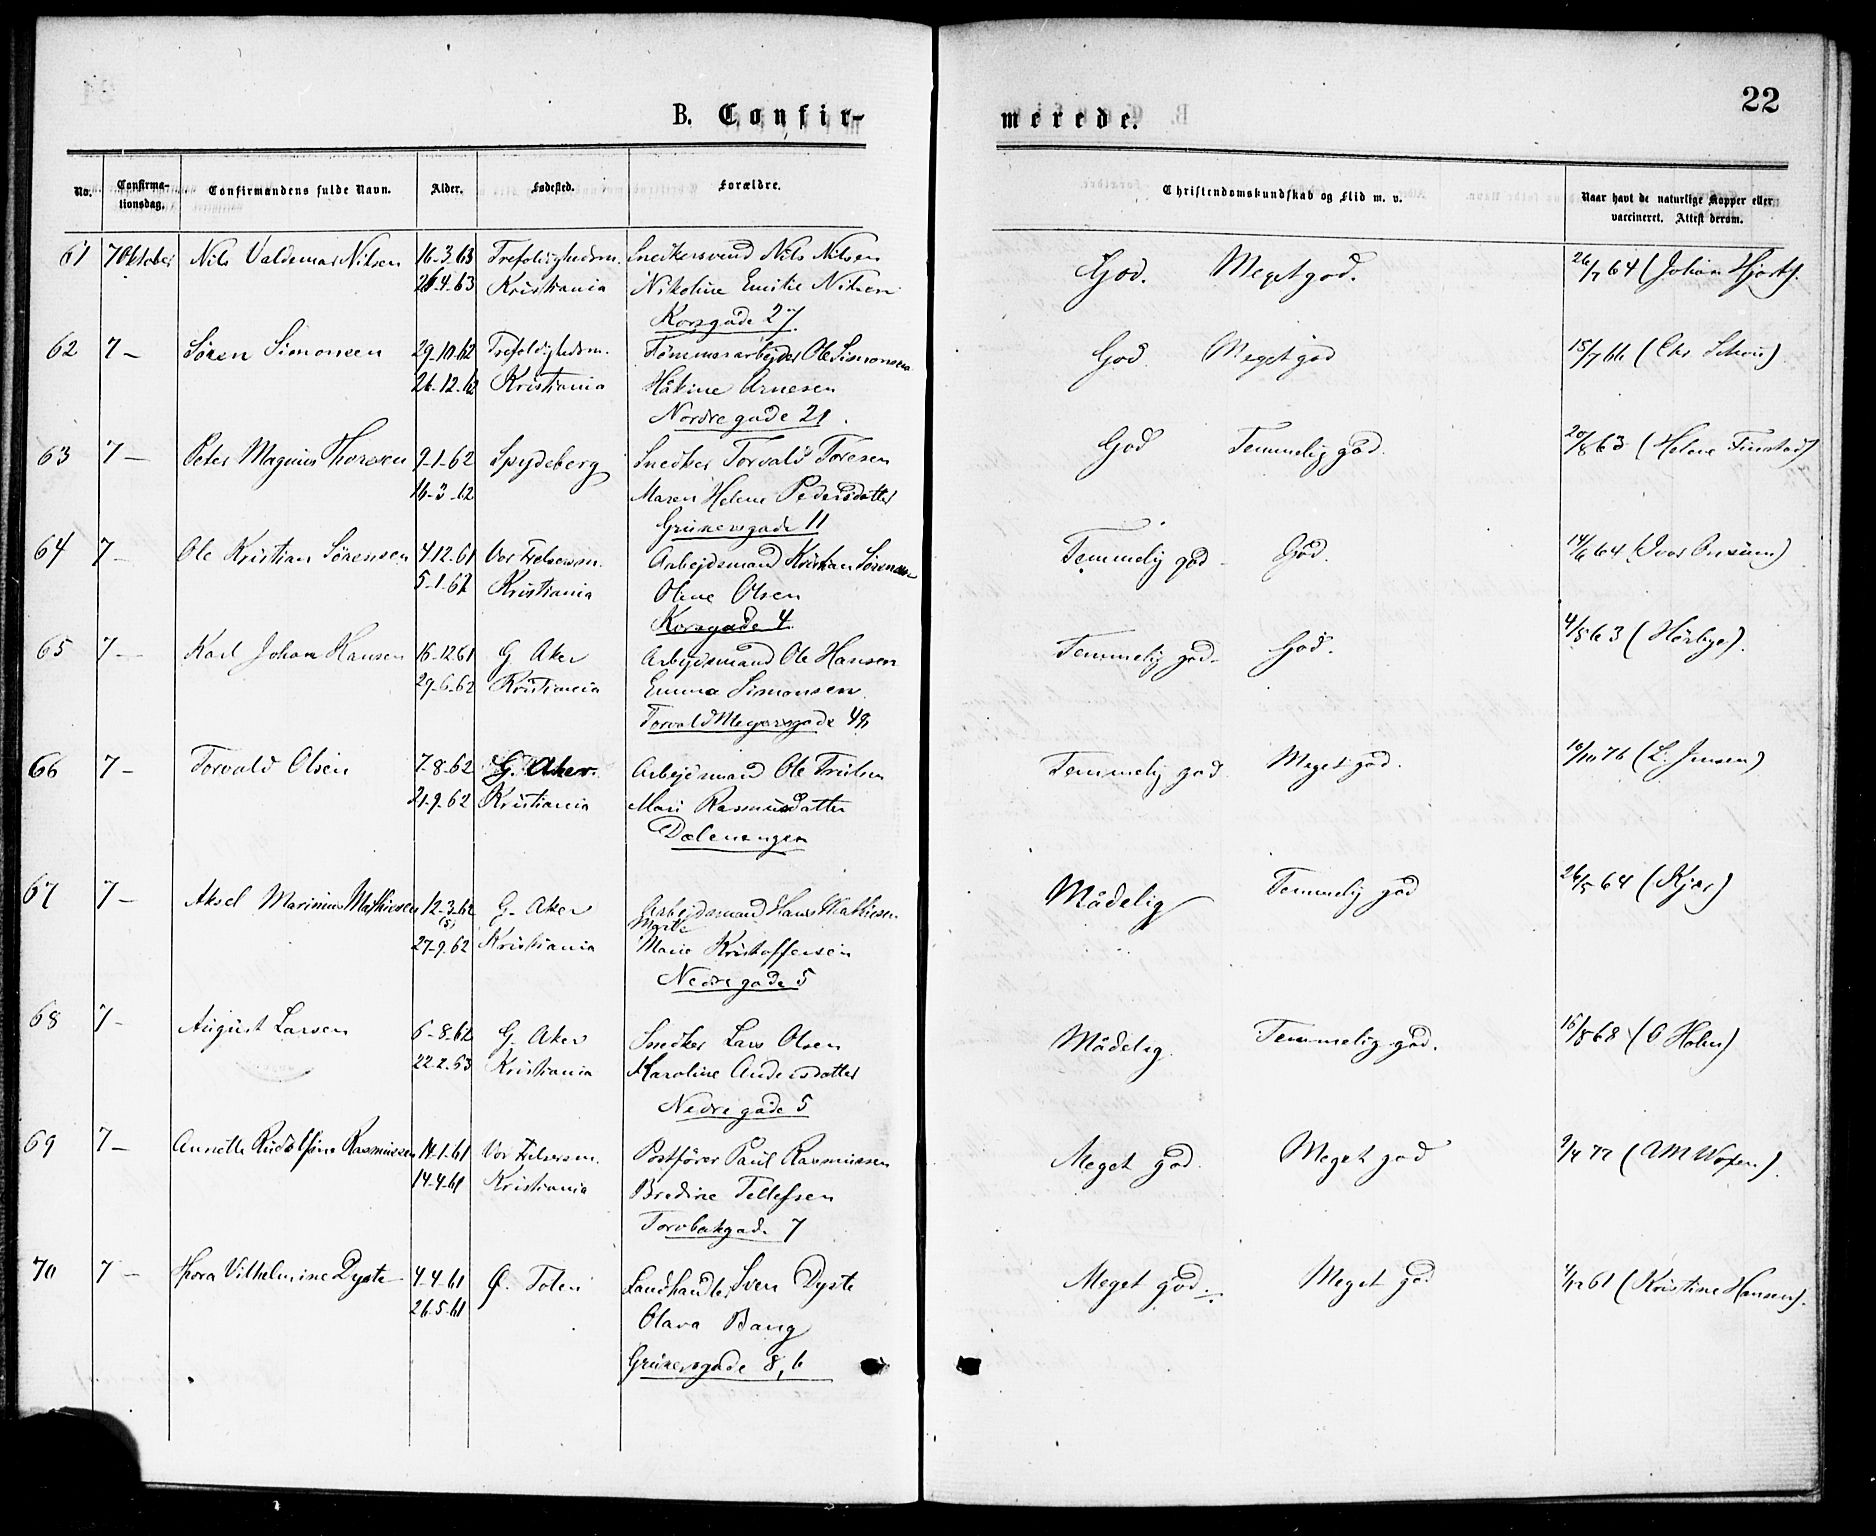 B. Confir-
merede.
22
No.
Confirma-
tionsdag.
Confirmandens fulde Navn.
Alder.
Fødested.
Forældre.
Christendomskundskab og Flid m. v.
Naar havt de naturlige Kopper eller
vaccineret. Attest derom.
61 7 Oktober Nils Valdemar Nilsen 16-3-63 Trefoldighedsm. Snedkersvend Nils Nilsen God. Meget god. 26/7 64 (Johan Hjorth).
26-4-63 Kristiania Nikoline Emilie Nilsen
Korsgade 27.
62 7 — Søren Simonsen 29-10-62 Trefoldighedsm. Tømmerarbejder Ole Simonsen God. Meget god 15/7 66 (Chr. Schou).
26-12-62 Kristiania Håkine Arnesen
Nordregade 21.
63 7 — Peter Magnus Thoresen 9-1-62 Spydeberg Snedker Torvald Toresen God Temmelig god. 20/8 63 (Helene Finstad)
16-3-62 Maren Helene Pedersdatter
Grünersgade 11
64 7 — Ole Kristian Sørensen 4-12-61 Vor Frelsersm. Arbejdsmand Kristian Sørensen Temmelig god - God. 14/6 64 (Ivar Onsum)
5-1-62 Kristiania Oline Olsen
Korsgade 4.
65 7 — Karl Johan Hansen 16-12-61 G. Aker Arbejdsmand Ole Hansen Temmelig god - God. 4/5 63 (Hörbye).
29-6-62 Kristiania Emma Simonsen
Torvald Meyersgade 49
66 7 — Torvald Olsen 7-8-62 G. Aker. Arbejdsmand Ole Trulsen Temmelig god. Meget god. 10/10 76 (L. Jensen)
21-9-62 Kristiania Mari Rasmusdatter
Dælenengen
67 7 — Aksel Marinius Mathiesen 12-3-62 G. Aker Arbejdsmand Hans Mathiesen Mådelig Temmelig god 26/5 64 (Kjær)
(5)
Marte
27-9-62 Kristiania Marie Kristoffersen
Nedregade 5
68 7 - August Larsen 6-8-62 G. Aker Snedker Lars Olsen Mådelig. Temmelig god. 15/8 68 (O Holm)
22-2-63 Kristiania Karoline Andersdatter
Nedregade 5
69 7 — Annette Rudolfine Rasmussen 14-1-61 Vor Frelsersm. Postfører Paul Rasmussen Meget god. Meget god 9/4 77 (AM Woxen).
14-4-61 Kristiania Bredine Tellefsen
Torvbakgad. 7
70 7 — Thora Vilhelmine Dyste 4-4-61 Ø. Toten Landhandler Sven Dyste Meget god. Meget god 4/12 61 (Kristine Hansen).
26-5-61 Olava Bang
Grünersgade 8, 6